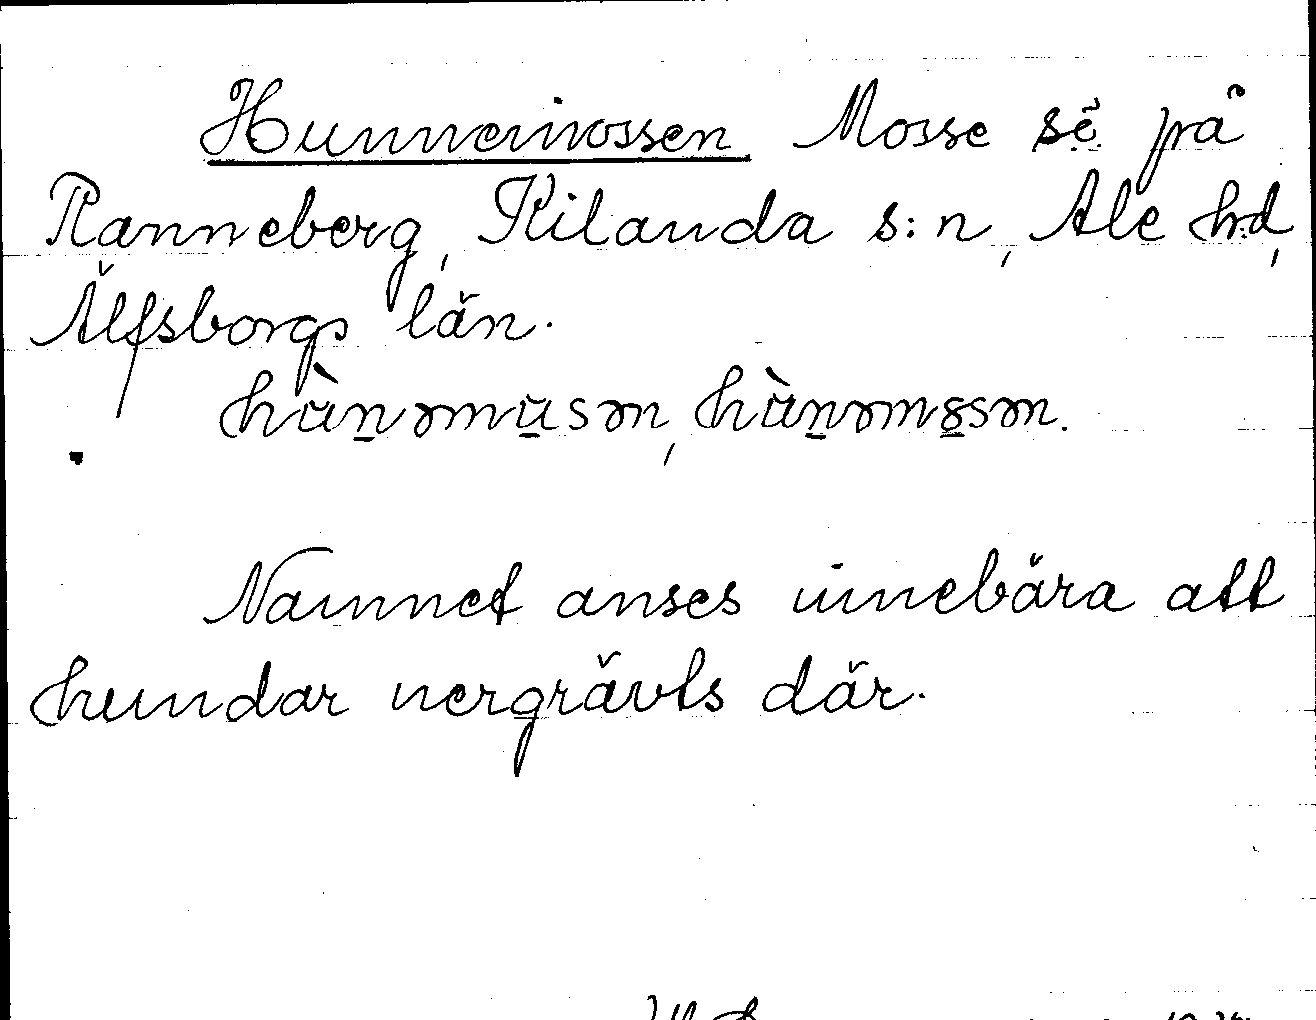 Hunnemossen. Mosse sö på
Ranneberg, Kilanda s:n, Ale h:d,
Älfsborgs län.
hùn̲əmu̲sən, hùn̲əmo̲sən.
Namnet anses innebära att
hundar nergrävts där.